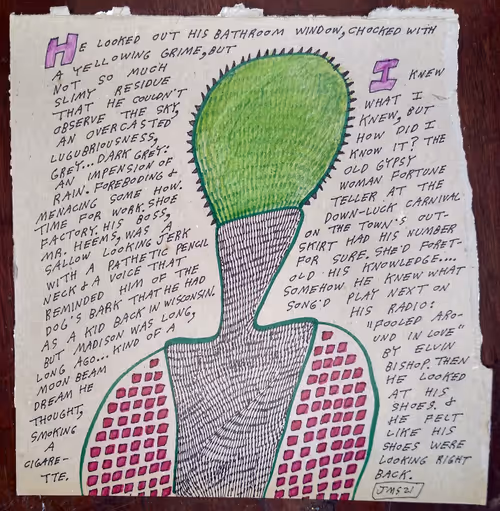 HE LOOKED OUT HIS BATHROOM WINDOW, CHOCKED WITH
A YELLOWING GRIME, BUT
NOT SO MUCH
SLIMY RESIDUE
THAT HE COULDN'T
OBSERVE THE SKY,
AN OVERCASTED
LUGUBRIOUSNESS,
GREY... DARK GREY.
AN IMPENSION OF
RAIN. FOREBODING &
MENACING SOME HOW.
TIME FOR WORK. SHOE
FACTORY. HIS BOSS,
MR. HEEMS, WAS A
SALLOW LOOKING JERK
WITH A PATHETIC PENCIL
NECK & A VOICE THAT
REMINDED HIM OF THE
DOG'S BARK THAT HE HAD
AS A KID BACK IN WISCONSIN.
BUT MADISON WAS LONG,
LONG AGO... KIND OF A
MOON BEAM
DREAM HE
THOUGHT,
SMOKING
A
CIGARE-
TTE.
I KNEW
WHAT I
KNEW, BUT
HOW DID I
KNOW IT? THE
OLD GYPSY
WOMAN FORTUNE
TELLER AT THE
DOWN-LUCK CARNIVAL
ON THE TOWN'S OUT-
SKIRT HAD HIS NUMBER
FOR SURE. SHE'D FORET-
OLD HIS KNOWLEDGE....
SOMEHOW HE KNEW WHAT
SONG'D PLAY NEXT ON
HIS RADIO:
"FOOLED ARO-
UND IN LOVE"
BY ELVIN
BISHOP. THEN
HE LOOKED
AT HIS
SHOES &
HE FELT
LIKE HIS
SHOES WERE
LOOKING RIGHT
BACK.
JMS21